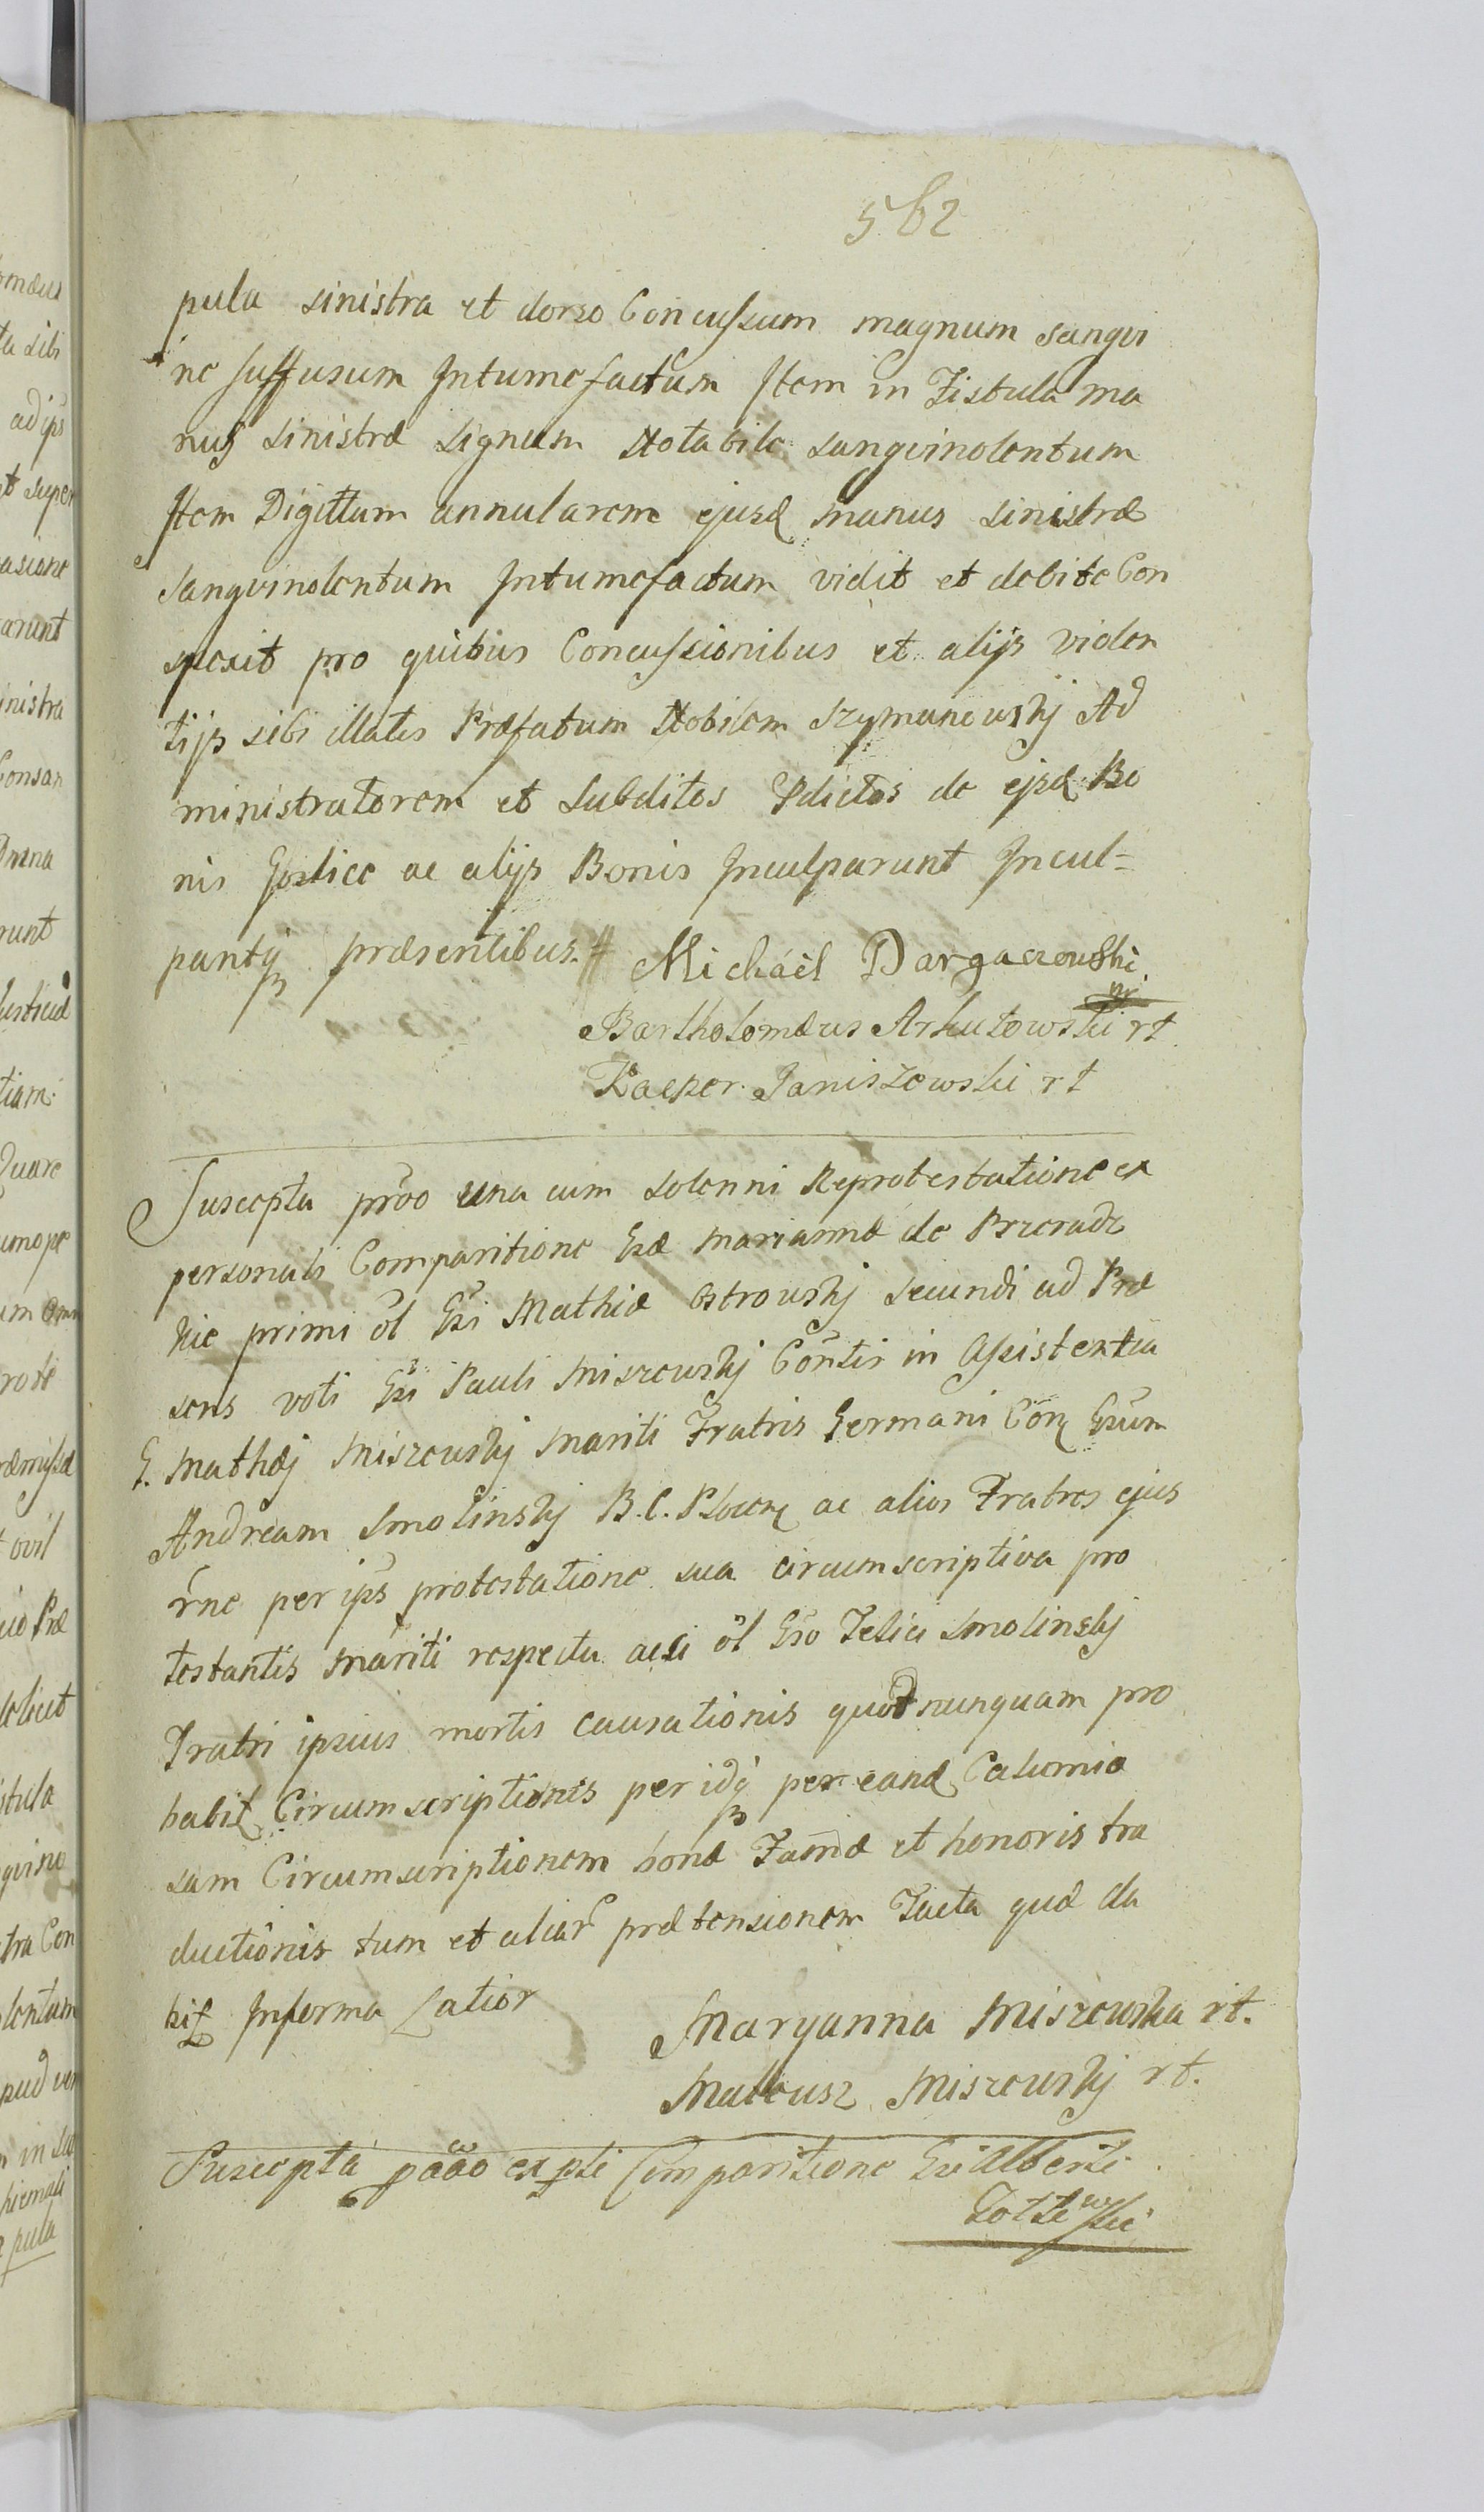 562
pula sinistra et dorso Concussum magnum sangvi
ne suffusum Intumefactum Item in Fistula ma
nus sinistræ signum Notabile sangvinolentum
Item Digittum annularem ejusd manus sinistræ
sangvinolentum Intumefactum vidit et debite Con
spexit pro quibus Concussionibus et alijs violen
tijs sibi illatis Præfatum Nobilem Szymanowskj Ad
ministratorem et Subditos Pdictos de ejsd Bo
nis Goslice ac alijs Bonis Inculparunt Incul=
pantq præsentibus.
Michaël Dargaczewski
mp
Bartholomæus Arkutowski rt
Kacper Janiszewski rt
Suscepta prõo una cum solenni Reprotestatione ex
personali Comparitione Gsæ Mariannæ de Przeradz
kie primi õl Gsi Mathiæ Ostrowskj secundi ad Præ
sens voti Gsi Pauli Miszewskj Cõntis in Assistentia
G. Mathæj Miszewskj Mariti Fratris Germani Cõn Gsum
Andream Smolinskj B.C. Plocen ac alios Fratres ejus
rñe per ips protestatione sua circumscriptiva pro
testantis Mariti respectu acsi õl Gso Felici Smolinskj
Fratri ipsius mortis causationis quod nunquam pro
babit Circumscriptionis per idq per eand Calumio
sam Circumscriptionem bonæ Famæ et honoris tra
ductionis tum et aliar prætensionem Facta quæ da
bit Informa Latior
Maryanna Miszewska rt.
Mateusz Miszewskj rt.
Suscepta ex pli Comparitione Gsi Alberti